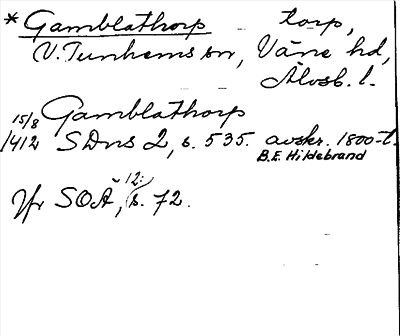 * Gamblathorp torp,
V. Tunhems sn, Väne hd,
Älvsb. l.
Gamblathorp
15/8
1412 SDns 2, s. 535. avskr. 1800-t.
B.E. Hildebrand
Jfr SOÄ, 12: s. 72.